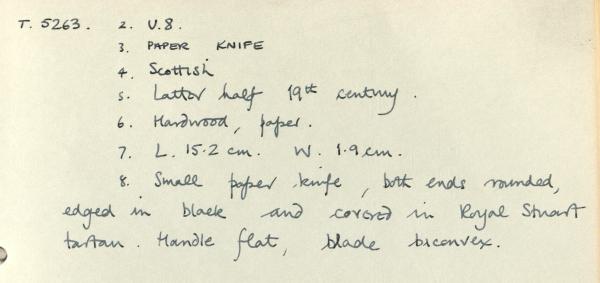 T. 5263. 2. U.8.
3. PAPER KNIFE
4. Scottish
5. Latter half 19th century.
6. Hardwood, paper.
7. L. 15.2 cm. W. 1.9 cm.
8. Small paper knife, both ends rounded,
edged in black and covered in Royal Stuart
tartan. Handle flat, blade biconvex.